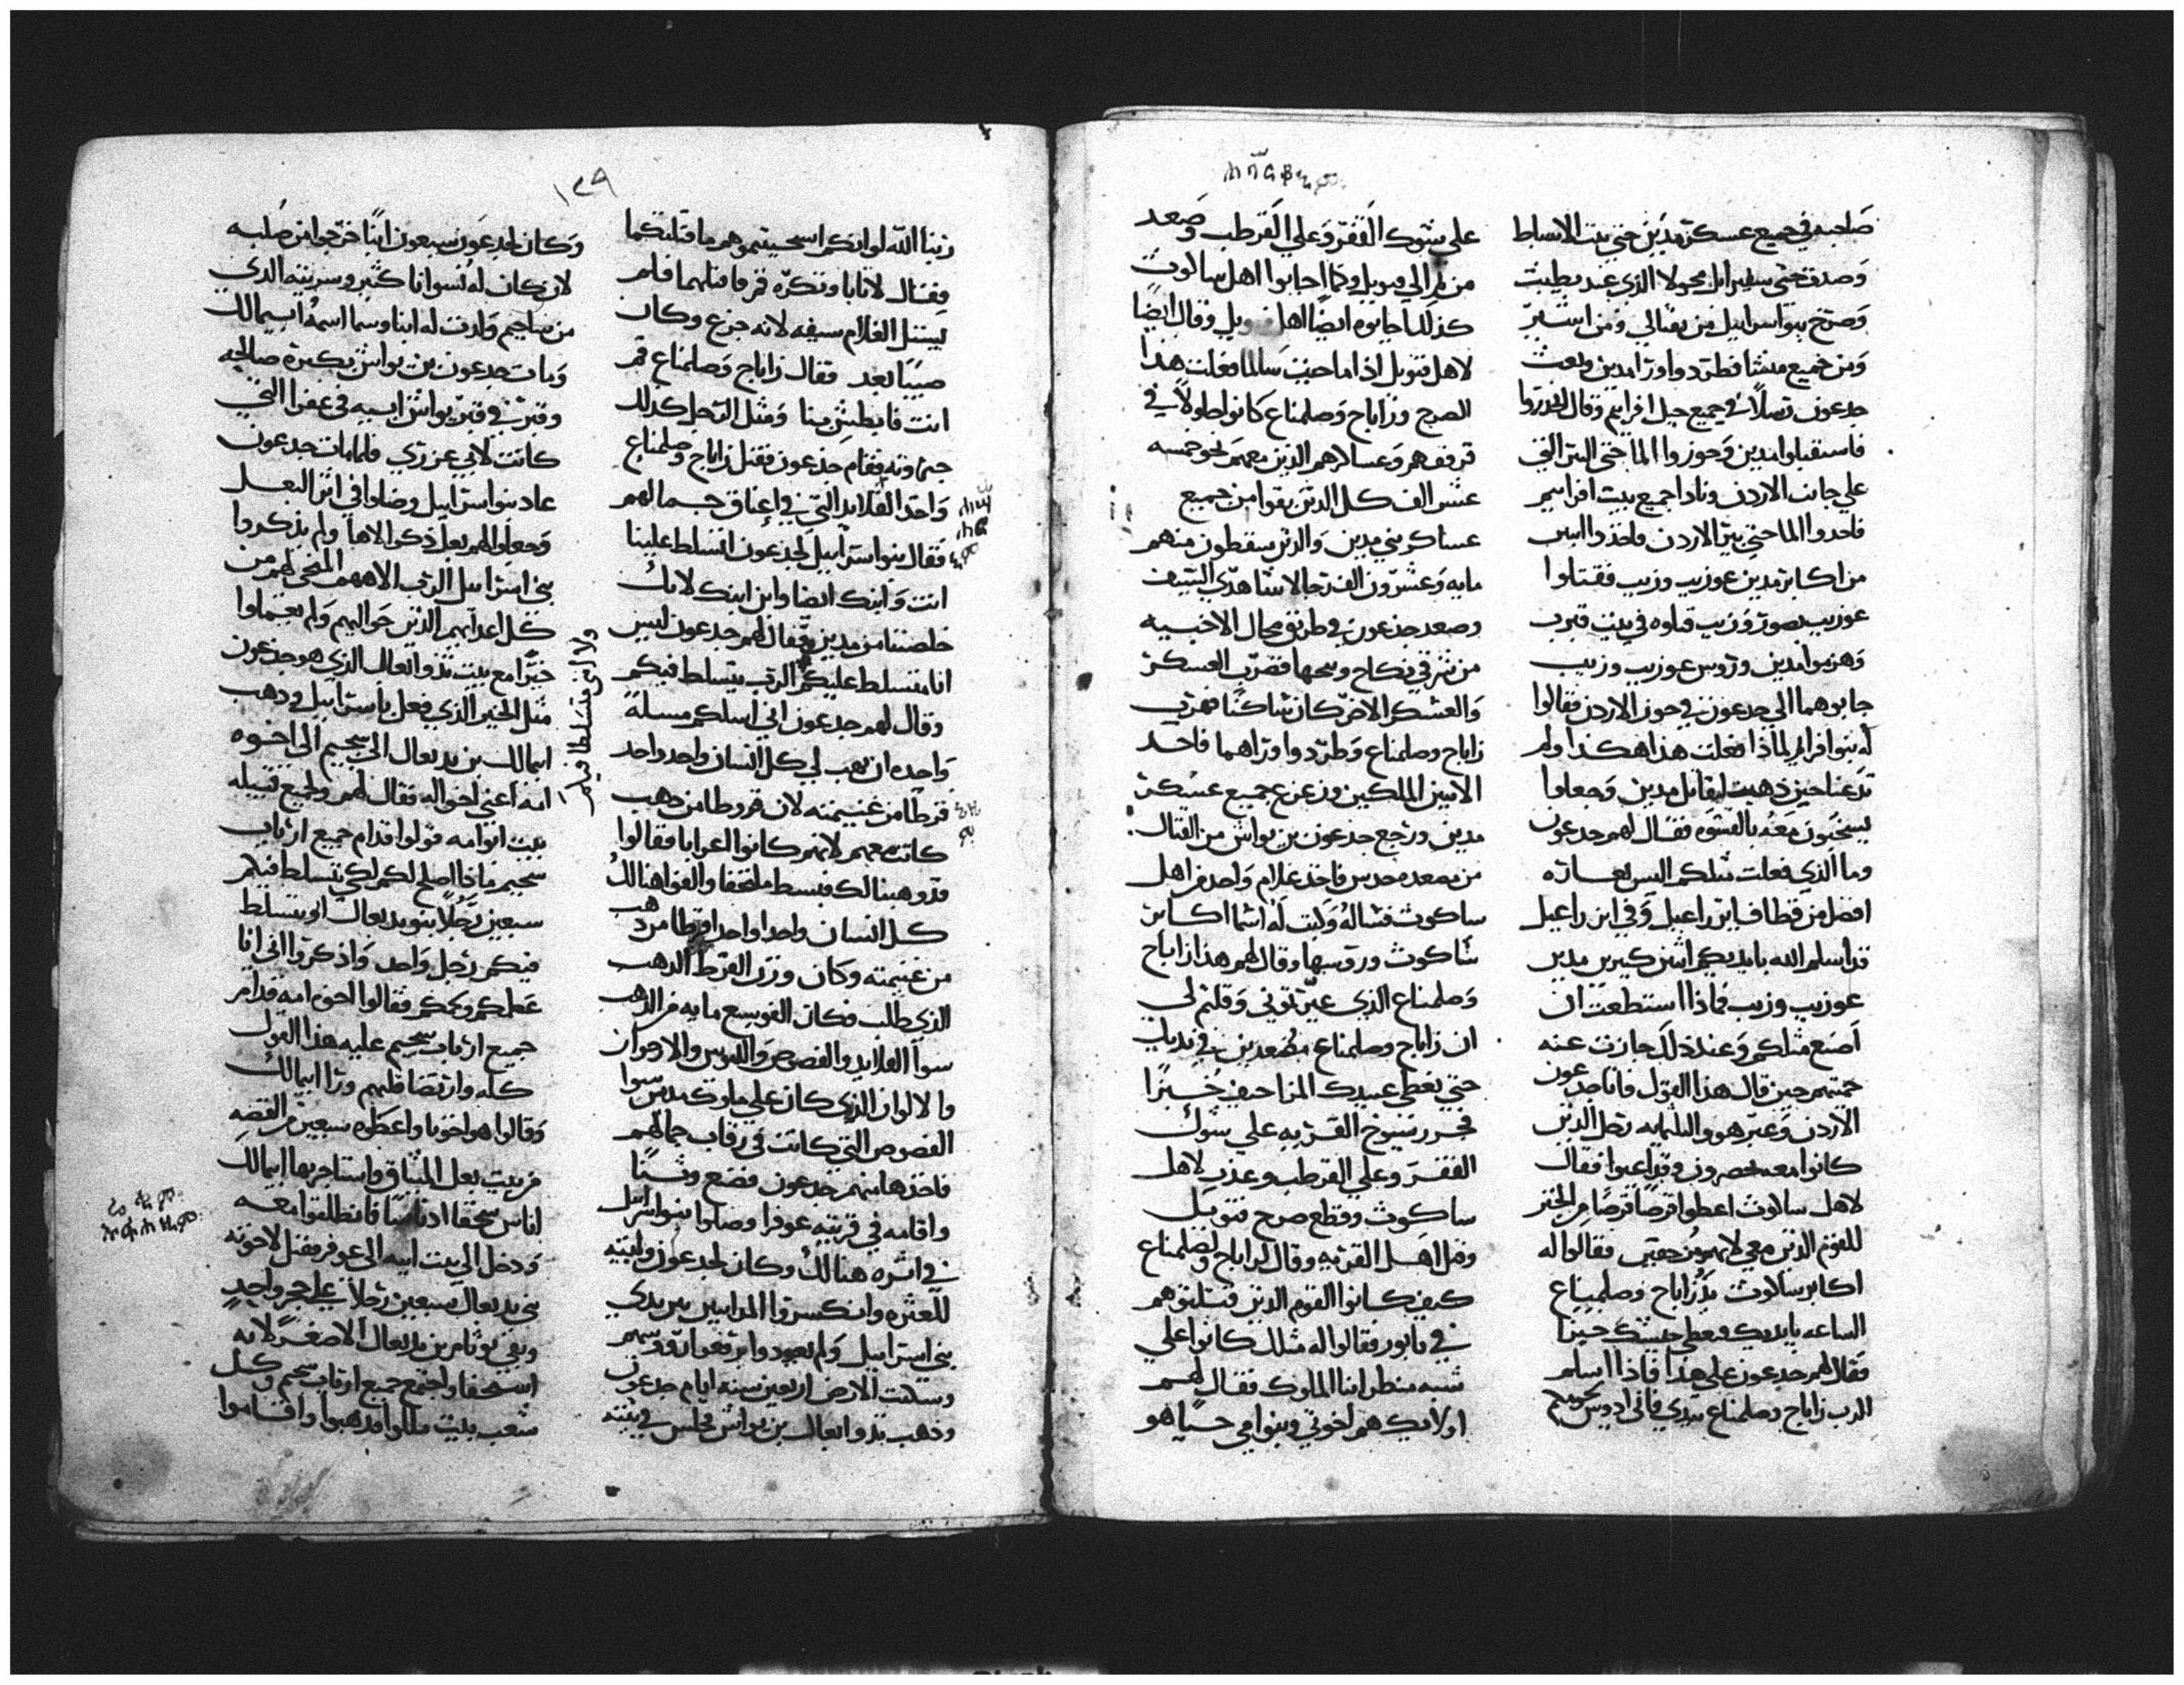 صاحبه في جميع عسكر مدين حتي بيت الاسباط
وصدف حتي سفير ابل محولا الذي عند بطيبث
وصرخ بنوا اسرايل من نفتالي ومن اشير
ومن جميع منشا فطردوا ورا مدين وبعث
جدعون رسلاً في جميع جبل افرايم وقال انزروا
فاستقبلوا مدين وحوزوا الما حتي البير التي
علي جانب الاردن ونادا جميع بيت افرايم
فاخدوا الما حتي بير الاردن فاخذوا اسير
من اكابر مدين عوزيب وزيب فقتلوا
عوزيب بصور وزيب قتلوه في بيت قبرب
وهزموا مدين وروس عوزيب وزيب
جابوهما الي جدعون في حوز الاردن فقالوا
له بنوا افرايم لماذا فعلت هذا هكذا ولم
تدعنا حين ذهبت لتقاتل مدين وجعلوا
يسخبون معه بالقسوه فقال لهم جدعون
وما الذي فعلت مثلكم اليس بعساره
افضل من قطاف ابن راعيل وفي ابن راعيل
قد اسلم الله بايديكم اثنين كبيرين مدين
عوزيب وزيب فماذا استطعت ان
اصنع مثلكم وعند ذلك جازت عنه
حمتهم حين قال هذا القول فاتا جدعون
الاردن وعبر هو والثلثمايه رجل الذين
كانوا معه يخصرون وقد اعيوا فقال
لاهل ساكوث اعطوا قرصاً قرصاً من الخبز
للقوم الذين معي لانهم من حقي فقالوا له
اكابر ساكوث يد زاباح وصلمناع
الساعه بايديك ونعطي جيشك خبزا
فقال لهم جدعون علي هذا فاذا اسلم
الرب زاباح وصلمناع بيدي فاني ادوس لحومكم
علي شوك القفر وعلي القرطب وصعد
من ثم الي فنوبل وكما اجابوا اهل ساكوث
كذلك اجابوه ايضاً اهل فنوبل وقال ايضاً
لاهل فنوبل اذا ما جيت سالما فعلت هذا
الصرح وزاباح وصلمناع كانوا حلولاً في
قرقف هم وعساكرهم الذين معهم نحو خمسه
عشر الف كل الذين بقوا من جميع
عساكر بني مدين والذين سقطون منهم
مايه وعشرون الف رجالا شاهدي السيف
وصعد جدعون في طريق محال الاخبيه
من شرقي نكاح ونيحها فضرب العسكر
والعسكر الاخر كان شاكنا فهرب
زاباح وصلمناع وطردوا وراهما فاخد
الاثنين الملكين وزعزع جميع عسكر
مدين ورجع جدعون بن يواش من القتال
من مصعد محدس فاخذ غلام واحد من اهل
ساكوث فساله وكتب له اسما اكابر
ساكوث وروسها وقال لهم هذا زاباح
وصلمناع الذي عيرتوني وقلتم لي
ان زاباح وصلمناع مضعدين في يديك
حتي نعطي عبيدك المزاحيف خبزا
فجرر شيوخ القريه علي شوك
القفر وعلي القرطب وعذب لاهل
ساكوث وقطع صرح فنوبيل
وقتل اهل القريه وقال لزاباح ولصلمناع
كيف كانوا القوم الذين قتلتوهم
في تابور فقالوا له مثلك كانوا علي
شبه منظر ابنا الملوك فقال لهم
اولايك هم اخوتي وبنوا امي حيا هو
١٤٩
ربنا الله لو انكم استحييتموهم ما قتلتكما
فقال لاثابا وتكرّه قم فاقتلهما فلم
يستل الغلام سيفه لانه جزع وكان
صبيا بعد فقال زاباح وصلمناع قم
انت فابطش بنا ومثل الرجل كذلك
جبروته فقام جدعون فقتل زاباح وصلمناع
واخد القلايد التي في اعناق جمالهم
فقال بنوا اسراييل لجدعون اتسلط علينا
انت وابنك ايضا وابن ابنك لانك
خلصتنا من مدين فقال لهم جدعون ليس
انا متسلط عليكم الرب يتسلط فيكم
ولا ابني متسلطا فيكم
وقال لهم جدعون اني اسلكم مسلة
واحده ان يهب لي كل انسان واحد واحد
قرطا من غنيمته لان قروطا من دهب
كانت معهم لانهم كانوا اعرابا فقالوا
قد وهبنا لك فبسط ملتحفا والقوا هنالك
كل انسان واحدا واحدا قرطا من دهب
من غنيمته وكان وزن القرط الدهب
الذي طلب فكان الف وسبع مايه من الدهب
سوا القلايد والفصوص واللبوس والارجوان
والالوان الذي كان علي ملوك مدين سوا
الفصوص التي كانت في رقاب جمالهم
فاخذها منهم جدعون فصنع وثنا
واقامه في قريته عوفرا وضلوا بنوا اسرايل
في اثره هنالك وكان لجدعون ولبيته
للعثره وانكسروا المدانيين بين يدي
بني اسراييل ولم يعودوا يرفعوا روسهم
وسكنت الارض اربعين سنه ايام جدعون
وذهب يدوا بعال بن يواش فجلس في بيته
وكان لجدعون سبعون ابنا خرجوا من صلبه
لان كان له نسوانا كثير وسريته الذي
من ساجيم ولدت له ابنا وسما اسمه ابيمالك
ومات جدعون بن يواش بكبرة صالحه
وقبر في قبر يواش ابيه في عفرا التي
كانت لابي عزري فلما مات جدعون
عاد بنوا اسراييل وضلوا في اثر البعل
وجعلوا لهم بعل ذكر الاها ولم يذكروا
بني اسراييل الرب الاههم المنجي لهم من
كل اعدايهم الذين حواليهم ولم يعملوا
خيرا مع بيت يدوا بعال الذي هو جدعون
مثل الخير الذي فعل باسراييل وذهب
ابيمالك بن يدبعال الي سجيم الي اخوه
امه اعني اخواله فقال لهم ولجميع قبيله
بيت ابو امه قولوا قدام جميع ارباب
سجيم ماذا اصلح لكم لكي يتسلط فيكم
سبعين رجلا بنو يدبعال او يتسلط
فيكم رجل واحد واذكروا اني انا
عظمكم ولحمكم فقالوا اخوه امه قدام
جميع ارباب سجيم عليه هذا القول
كله وارتضا قلبهم ورا ابيمالك
وقالوا هو اخونا واعطوه سبعين من الفضه
من بيت بعل الميثاق واستاجر بها ابيمالك
اناس سخفا ادناسا فانطلقوا معه
ودخل الي بيت ابيه الي عوفر فقتل لاخوته
بني يدبعال سبعين رجلا علي حجر واحد
وبقي يوثام بن يدبعال الاصغر لانه
استخفا واجتمع جميع ارباب سجيم وكل
شعب بيت مللوا فذهبوا واقاموا